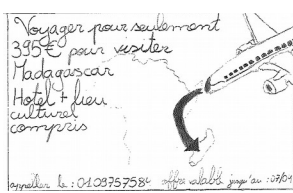 Voyager pour seulement
395€ pour visiter
Madagascar
Hotel + lieu
culturel
compris
appeller le : 0109757584 offre valable jusqu'au : 07/04